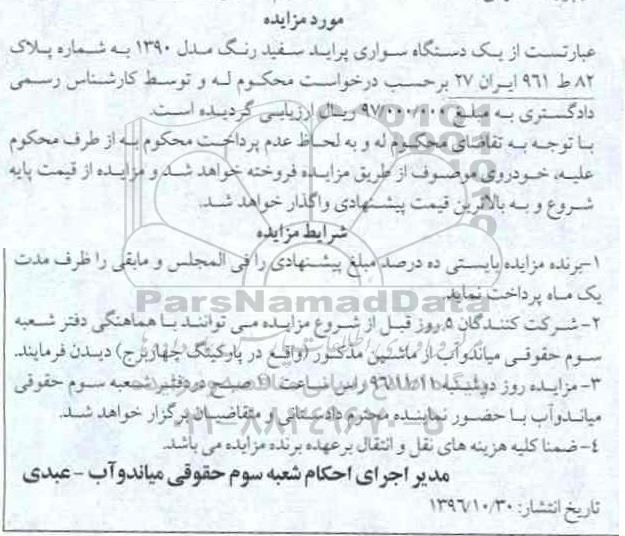 مورد مزایده
عبارتست از یک دستگاه سواری پراید سفید رنگ مدل ۱۳۹۰ به شماره پلاک
۸۲ ط ۹۶۱ ایران ۲۷ برحسب درخواست محکوم له و توسط کارشناس رسمی
دادگستری به مبلغ ۹۷/۰۰۰/۰۰۰ ریال ارزیابی گردیده است.
با توجه به تقاضای محکوم له و به لحاظ عدم پرداخت محکوم به از طرف محکوم
علیه، خودروی موصوف از طریق مزایده فروخته خواهد شد و مزایده از قیمت پایه
شروع و به بالاترین قیمت پیشنهادی واگذار خواهد شد.
شرایط مزایده
۱-برنده مزایده بایستی ده درصد مبلغ پیشنهادی را فی المجلس و مابقی را ظرف مدت
یک ماه پرداخت نماید.
ParsNamadData
۲- شرکت کنندگان ۵ روز قبل از شروع مزایده می توانند با هماهنگی دفتر شعبه
سوم حقوقی میاندوآب از ماشین مذکور (واقع در پارکینگ چهاربرج) دیدن فرمایند.
۳- مزایده روز دوشنبه ۹۶/۱۱/۱۱ راس ساعت صبح در دفتر شعبه سوم حقوقی
میاندوآب با حضور نماینده محترم دادستانی و متقاضیان برگزار خواهد شد.
۴- ضمنا کلیه هزینه های نقل و انتقال برعهده برنده مزایده می باشد.
مدیر اجرای احکام شعبه سوم حقوقی میاندوآب - عبدی
تاریخ انتشار: ۱۳۹۶/۱۰/۳۰